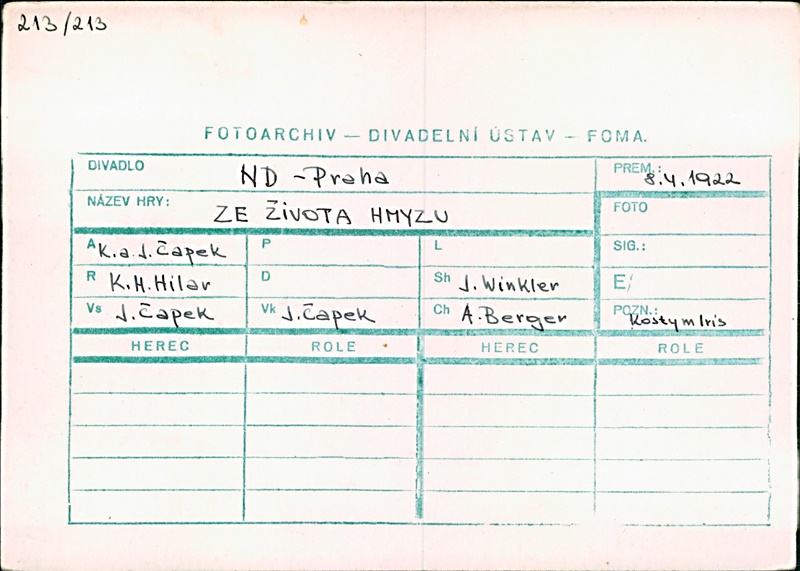 213/213
FOTOARCHIV — DIVADELNÍ ÚSTAV — FOMA.
DIVADLO ND - Praha PREM.: 8.4.1922
NÁZEV HRY: ZE ŽIVOTA HMYZU FOTO
A K. a J. Čapek P L SIG.:
R K. H. Hilar D Sh J. Winkler E/
Vs J. Čapek Vk J. Čapek Ch A. Berger POZN.: Kostym Iris
HEREC ROLE HEREC ROLE